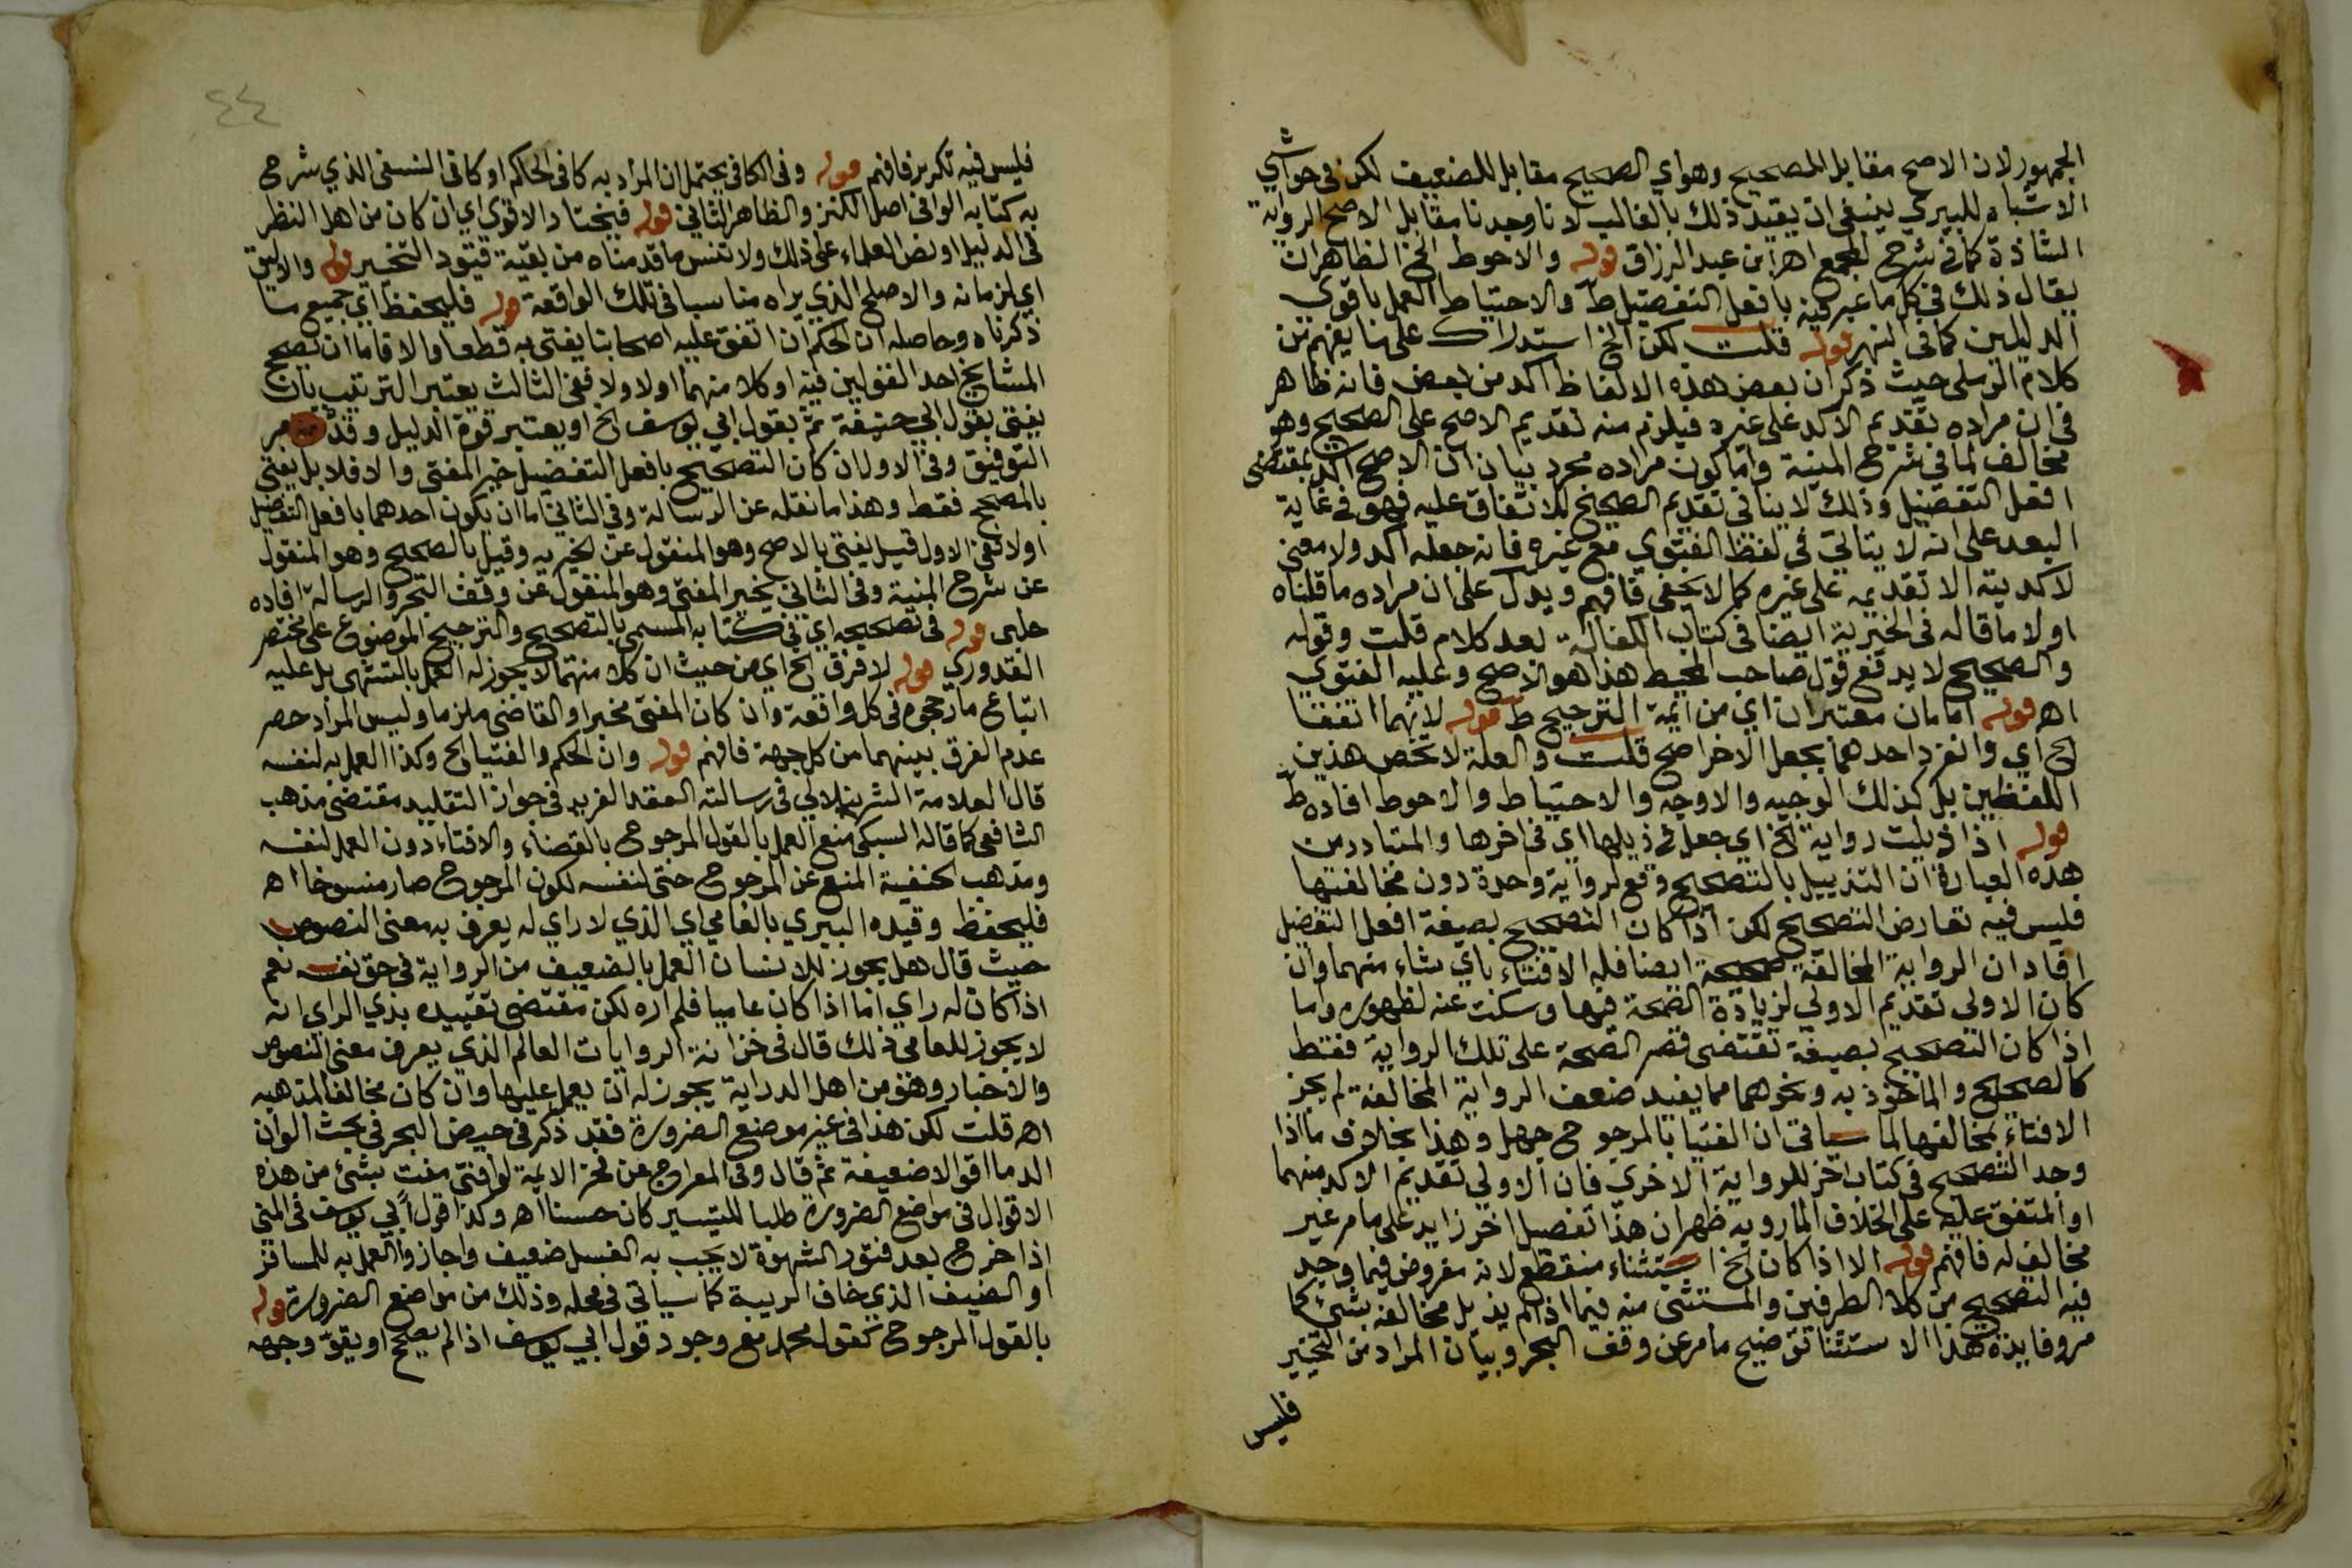 الجمهور لان الاصح مقابل للصحيح وهو اي الصحيح مقابل للضعيف لكن في حواشي
الاشباه للبيري ينبغي ان يقيد ذلك بالغالب لانا وجدنا مقابل الاصح الرواية
الشاذة كما في شرح المجمع اهـ ابن عبد الرزاق قوله والاحوط الخ الظاهر ان
يقال ذلك في كل ما عبر فيه بافعل التفضيل ط والاحتياط العمل باقوي
الدليلين كما في النهر قوله قلت لكن الخ استدراك على ما يفهم من
كلام الرملي حيث ذكر ان بعض هذه الالفاظ اكد من بعض فانه ظاهر
في ان مراده تقديم الاكد على غيره فيلزم منه تقديم الاصح على الصحيح وهو
مخالف لما في شرح المنية واما كون مراده مجرد بيان ان الاصح اكد بمقتضى
افعل التفضيل وذلك لا ينافي تقديم الصحيح للاتفاق عليه فهو في غاية
البعد على انه لا يتاتي في لفظ الفتوي مع غيره فانه جعله اكد ولا معنى
لاكديته الا تقديمه على غيره كما لا يخفى فافهم ويدل على ان مراده ما قلناه
اولا ما قاله في الخيرية ايضا في كتاب الكفالة بعد كلام قلت وقوله
والصحيح لا يدفع قول صاحب المحيط هذا هو الاصح وعليه الفتوي
اهـ قوله امامان معتبران اي من ائمة الترجيح ط قوله لانهما اتفقا
الخ اي وانفرد احدهما بجعل الاخر اصح قلت والعلة لا تخص هذين
اللفظين بل كذلك الوجيه والاوجه والاحتياط والاحوط افاده ط
قوله اذا ذيلت رواية الخ اي جعل في ذيلها اي في اخرها والمتبادر من
هذه العبارة ان التذييل بالتصحيح وقع لرواية واحدة دون مخالفتها
فليس فيه تعارض التصحيح لكن اذا كان التصحيح بصيغة افعل التفضيل
افاد ان الرواية المخالفة صحيحة ايضا فله الافتاء باي شاء منهما وان
كان الاولى تقديم الاولي لزيادة الصحة فيها وسكت عنه لظهوره واما
اذا كان التصحيح بصيغة تقتضي قصر الصحة على تلك الرواية فقط
كالصحيح والماخوذ به ونحوهما مما يفيد ضعف الرواية المخالفة لم يجز
الافتاء بمخالفها لما سياتي ان الفتيا بالمرجوح جهل وهذا بخلاف ما اذا
وجد التصحيح في كتاب اخر للرواية الاخري فان الاولي تقديم الاكد منهما
او المتفق عليه على الخلاف المار وبه ظهر ان هذا تفصيل اخر زايد على ما مر غير
مخالف له فافهم قوله الا اذا كان الخ استثناء منقطع لانه مفروض فيما وجد
فيه التصحيح من كلا الطرفين والمستثنى منه فيما اذا لم يذيل مخالفه بشئ كما
مر وفايدة هذا الاستثنا توضيح ما مر عن وقف البحر وبيان المراد من التخيير
فليس
٤٤
فليس فيه تكرير فافهم قوله وفي الكافي يحتمل ان المراد به كافي الحاكم او كافي النسفي الذي شرح
به كتابه الوافي اصل الكنز والظاهر الثاني قوله فيختار الاقوي اي ان كان من اهل النظر
في الدليل او نص العلماء على ذلك ولا تنس ما قدمناه من بقية قيود التخيير قوله والاليق
اي لزمانه والاصلح الذي يراه مناسبا في تلك الواقعة قوله فليحفظ اي جميع ما
ذكرناه وحاصله ان الحكم ان اتفق عليه اصحابنا يفتى به قطعا والا فاما ان تصحح
المشايخ احد القولين فيه او كلا منهما اولا ولا ففي الثالث يعتبر الترتيب بان
يفتى بقول ابي حنيفة ثم بقول ابي يوسف الخ او يعتبر قوة الدليل وقد مر
التوفيق وفي الاول ان كان التصحيح بافعل التفضيل خير المفتى والا فلا بل يفتى
بالمصحح فقط وهذا ما نقله عن الرسالة وفي الثاني اما ان يكون احدهما بافعل التفضيل
اولا ففي الاول قيل يفتي بالاصح وهو المنقول عن الخيرية وقيل بالصحيح وهو المنقول
عن شرح المنية وفي الثاني يخير المفتي وهو المنقول عن وقف البحر والرسالة افاده
حلبي قوله في تصحيحه اي في كتابه المسمى بالتصحيح والترجيح الموضوع على مختصر
القدوري قوله لا فرق الخ اي من حيث ان كلا منهما لا يجوز له العمل بالتشهي بل عليه
اتباع ما رجحوه في كل واقعة وان كان المفتي مخبرا والقاضي ملزما وليس المراد حصر
عدم الفرق بينهما من كل جهة فافهم قوله وان الحكم والفتيا الخ وكذا العمل به لنفسه
قال العلامة الشرنبلالي في رسالته العقد الفريد في جواز التقليد مقتضى مذهب
الشافعي كما قاله السبكي منع العمل بالقول المرجوح بالقضاء والافتاء دون العمل لنفسه
ومذهب الحنفية المنع عن المرجوح حتى لنفسه لكون المرجوح صار منسوخا اهـ
فليحفظ وقيده البيري بالعامي اي الذي لا راي له يعرف به معنى النصوص
حيث قال هل يجوز للانسان العمل بالضعيف من الرواية في حق نفسه نعم
اذا كان له راي اما اذا كان عاميا فلم اره لكن مقتضى تقييده بذي الراي انه
لا يجوز للعامي ذلك قال في خزانة الروايات العالم الذي يعرف معنى النصوص
والاخبار وهو من اهل الدراية يجوز له ان يعمل عليها وان كان مخالفا لمذهبه
اهـ قلت لكن هذا في غير موضع الضرورة فقد ذكر في حيض البحر في بحث الوان
الدما اقوالا ضعيفة ثم قال وفي المعراج عن فخر الايمة لو افتى مفت بشئ من هذه
الاقوال في مواضع الضرورة طلبا للتيسير كان حسنا اهـ وكذا قول ابي يوسف في المني
اذا خرج بعد فتور الشهوة لا يجب به الغسل ضعيف واجازوا العمل به للمسافر
او الضيف الذي خاف الريبة كما سياتي في محله وذلك من مواضع الضرورة قوله
بالقول المرجوح كقول محمد مع وجود قول ابي يوسف اذا لم يصحح او يقو وجهه